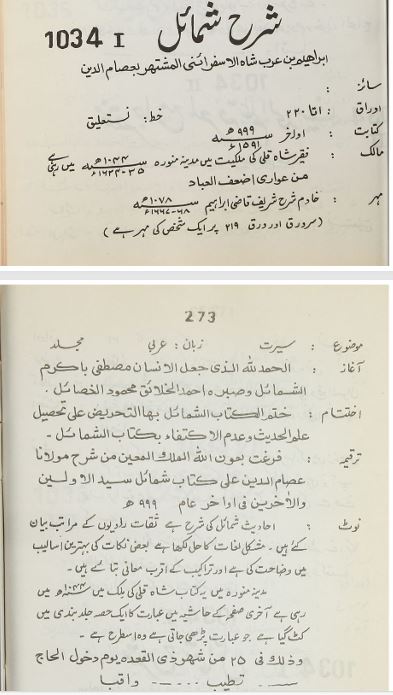 شرح شمائل 1034 I
ابراهیم بن عرب شاه الاسفرائنی المشتهر بعصام الدین
سائز :
اوراق : ۱ تا ۲۲۰ خط: نستعلیق
کتابت : اواخر ۹۹۹ھ / ۱۵۹۱ء
مالک : فقیر شاه قلی کی ملکیت میں مدینہ منوره ۱۰۴۴ھ / ۱۶۳۴-۳۵ء میں رہی
من عواری اضعف العباد
مہر : خادم شرع شریف قاضی ابراہیم ۱۰۷۸ھ / ۱۶۶۷-۶۸ء
(سرورق اور ورق ۲۱۹ پر ایک شخص کی مہر ہے)
273
موضوع : سیرت زبان : عربی مجلد
آغاز : الحمد لله الذی جعل الانسان مصطفی باکرم
الشمائل وصیره احمد الخلائق محمود الخصائل .
اختتام : ختم الکتاب الشمائل بها التحریض علی تحصیل
علم الحدیث وعدم الاکتفاء بکتاب الشمائل -
ترقیم : فرغت بعون الله الملک المعین من شرح مولانا
عصام الدین علی کتاب شمائل سید الاولین
والأخرین فی اواخر عام ۹۹۹ ھ
نوٹ : احادیث شمائل کی شرح ہے ثقات راویوں کے مراتب بیان
کئے ہیں - مشکل لغات کا حل لکھا ہے بعض نکات کی بہترین اسالیب
میں وضاحت کی ہے اور تراکیب کے اقرب معانی بتائے ہیں -
مدینہ منوره میں یہ کتاب شاه قلی کی ملک میں ۱۰۴۴ھ میں
رہی ہے آخری صفحہ کے حاشیہ میں عبارت کا ایک حصہ جلد بندی میں
کٹ گیا ہے جو عبارت پڑھی جاتی ہے وہ اسطرح ہے -
وذلک فی ۲۵ من شهر ذی القعده یوم دخول الحاج
تطیب ...... واقبا